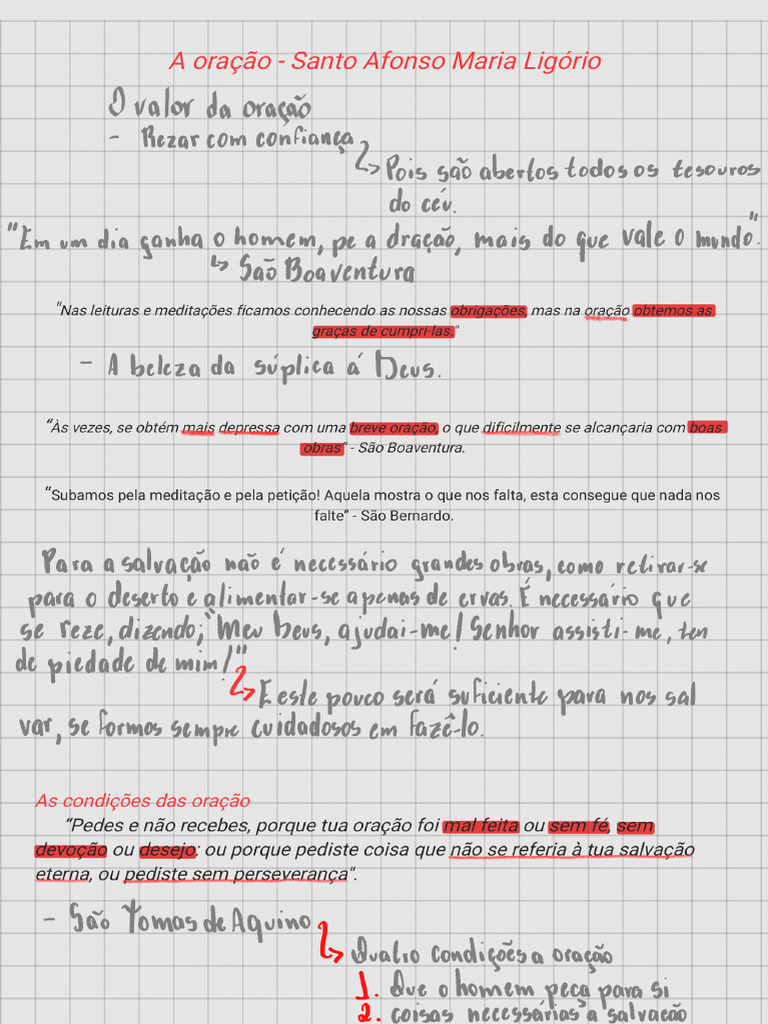 A oração - Santo Afonso Maria Ligório
O valor da oração
- Rezar com confiança
Pois são abertos todos os tesouros
do céu.
"Em um dia ganha o homem, pe a oração, mais do que vale o mundo."
São Boaventura
"Nas leituras e meditações ficamos conhecendo as nossas obrigações, mas na oração obtemos as
graças de cumpri-las."
- A beleza da súplica á Deus.
"Às vezes, se obtém mais depressa com uma breve oração, o que dificilmente se alcançaria com boas
obras" - São Boaventura.
"Subamos pela meditação e pela petição! Aquela mostra o que nos falta, esta consegue que nada nos
falte" - São Bernardo.
Para a salvação não é necessário grandes obras, como retirar-se
para o deserto e alimentar-se apenas de ervas. É necessário que
se reze, dizendo; "Meu Deus, ajudai-me! Senhor assisti-me, ten
de piedade de mim!"
E este pouco será suficiente para nos sal
var, se formos sempre cuidadosos em fazê-lo.
As condições das oração
"Pedes e não recebes, porque tua oração foi mal feita ou sem fé, sem
devoção ou desejo: ou porque pediste coisa que não se referia à tua salvação
eterna, ou pediste sem perseverança".
- São Tomas de Aquino
Quatro condições a oração
1. Que o homem peça para si
2. coisas necessárias a salvação